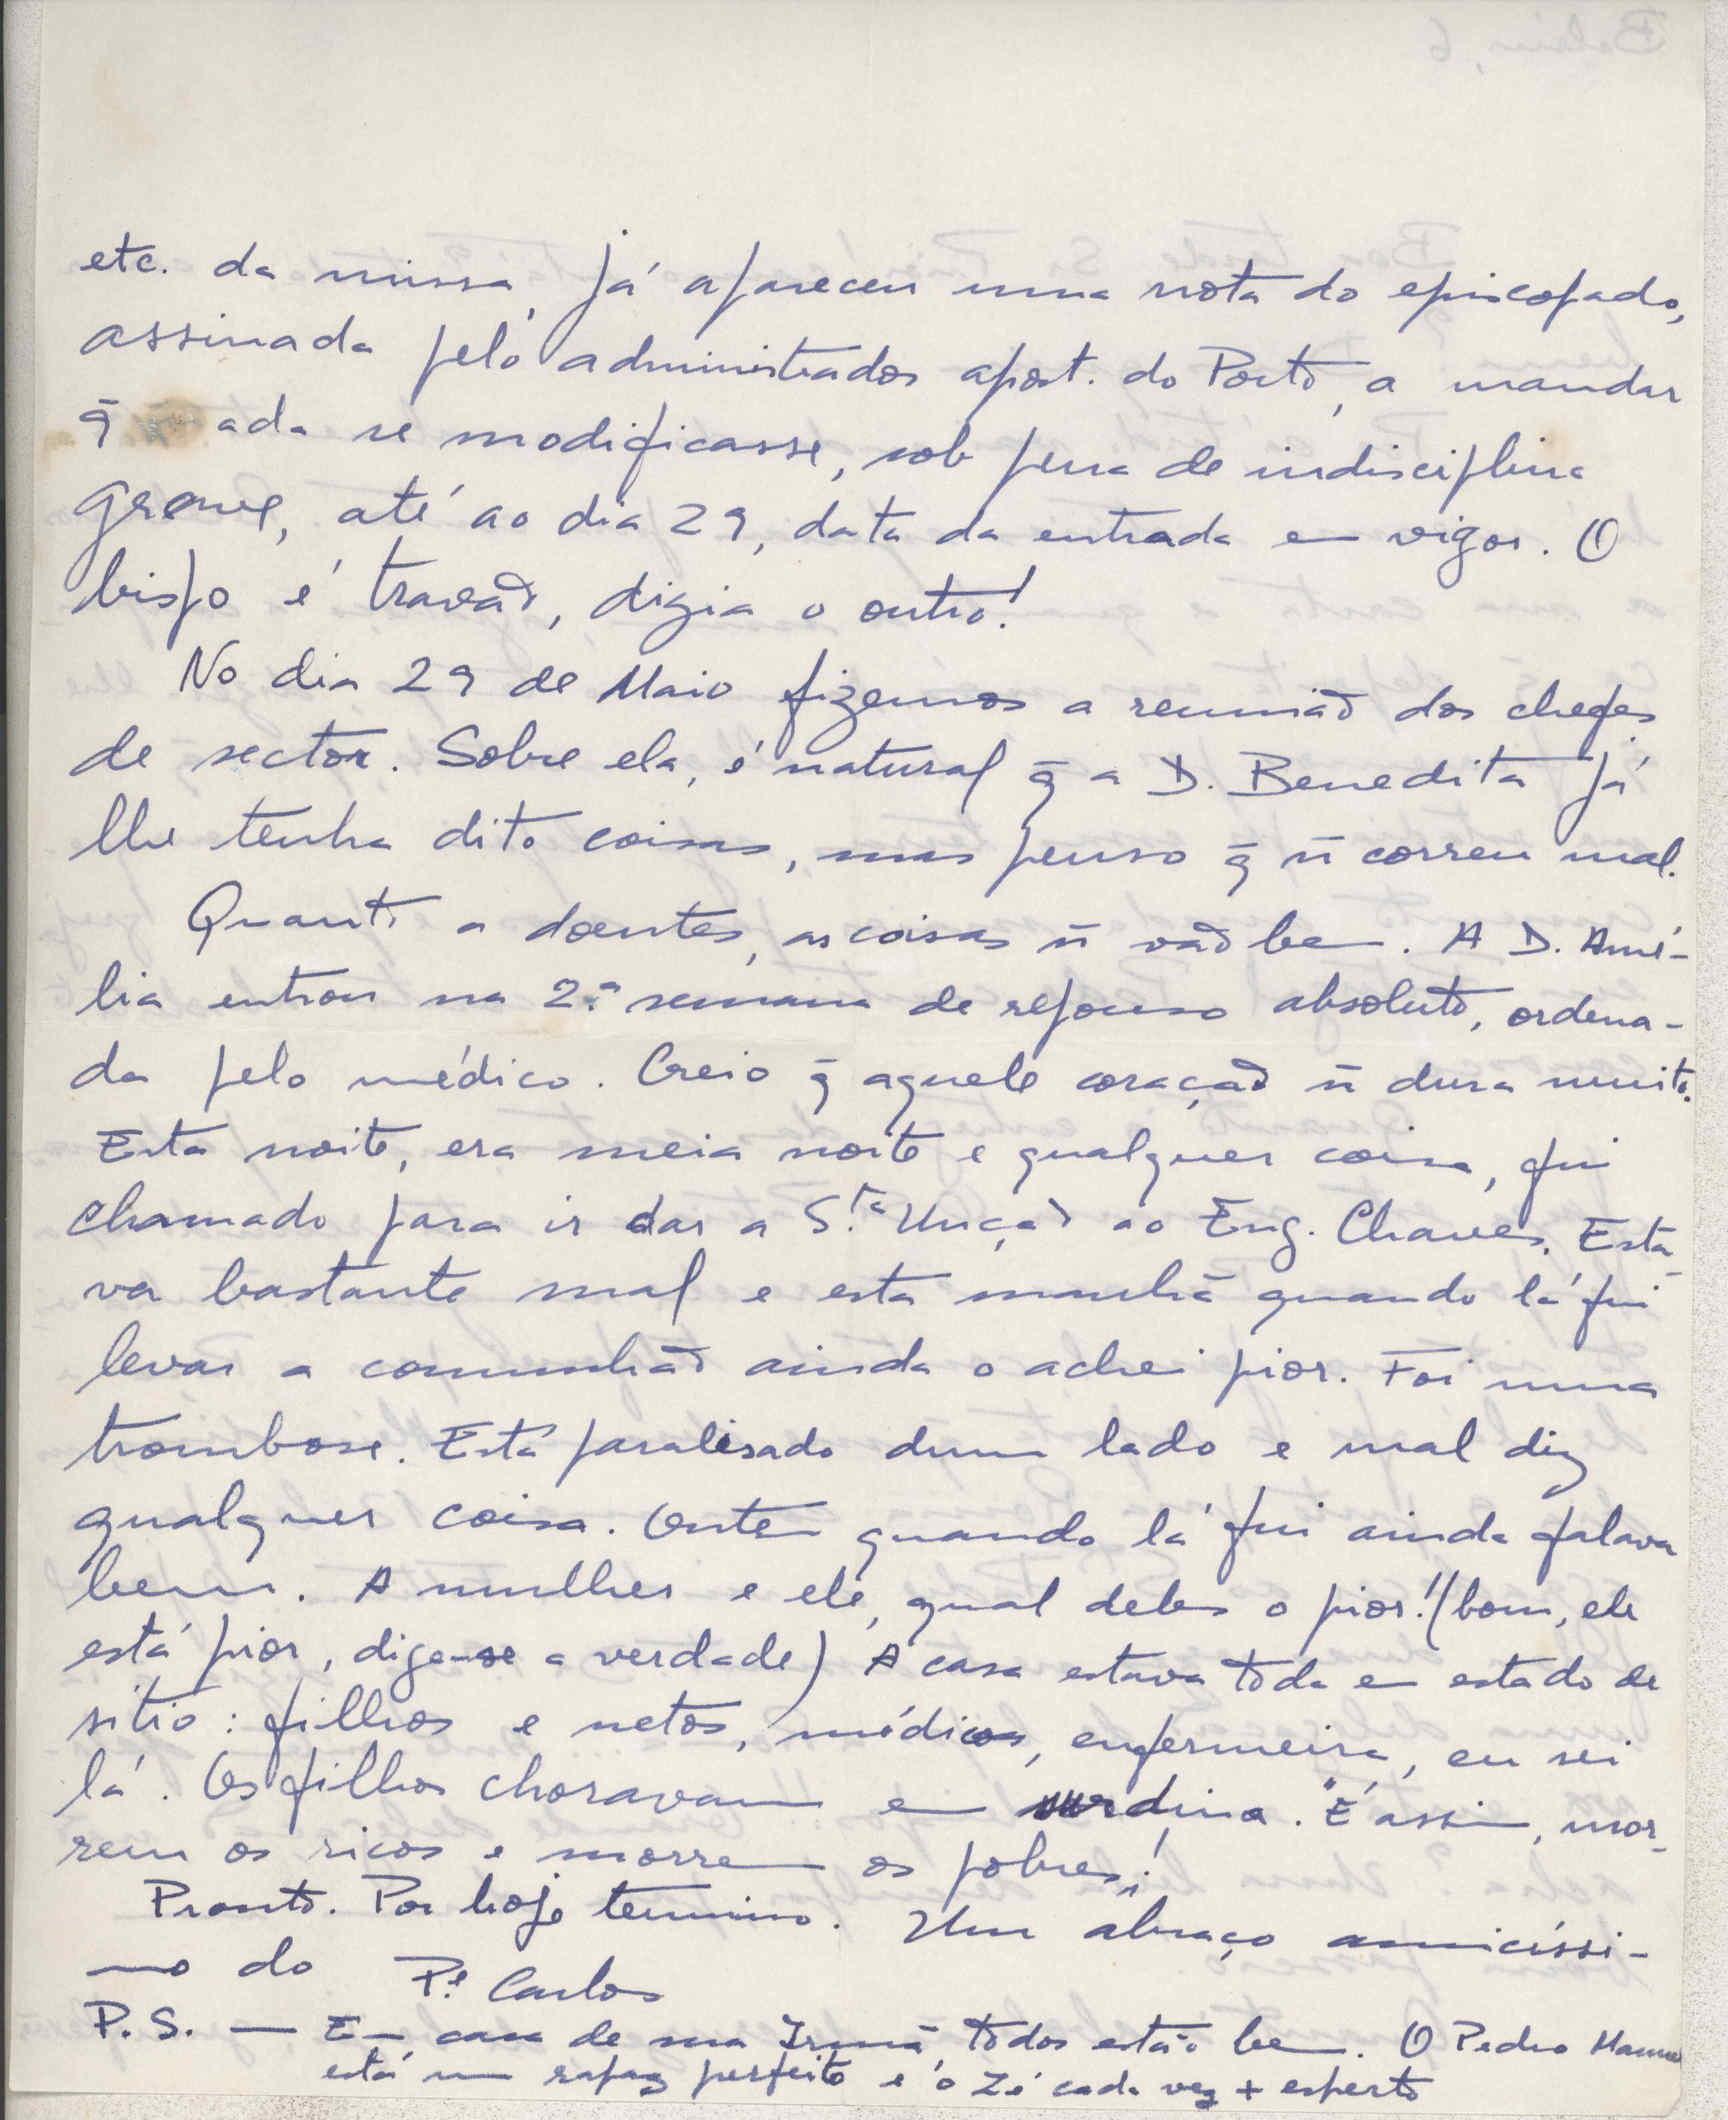 etc. da missa, já apareceu uma nota do episcopado,
assinada pelo administrador apost. do Porto, a mandar
q̄ ada se modificasse, sob pena de indisciplina
grave, até ao dia 29, data da entrada em vigor. O
bispo é travão, dizia o outro!
No dia 29 de Maio fizemos a reunião dos chefes
de sector. Sobre ela, é natural q̄ a D. Benedita já
lhe tenha dito coisas, mas penso q̄ ñ correu mal.
Quanto a doentes, as coisas ñ vão bem. A D. Amé-
lia entrou na 2.ª semana de repouso absoluto, ordena-
da pelo médico. Creio q̄ aquele coração ñ dura muito.
Esta noite, era meia noite e qualquer coisa, fui
chamado para ir dar a S.ta Unção ao Eng. Chaves. Esta-
va bastante mal e esta manhã quando lá fui
levar a comunhão ainda o achei pior. Foi uma
trombose. Está paralisado dum lado e mal diz
qualquer coisa. Ontem quando lá fui ainda falava
bem. A mulher e ele, qual deles o pior! (bom, ele
está pior, diga-se a verdade) A casa estava toda em estado de
sítio: filhos e netos, médicos, enfermeira, eu sei
lá. Os filhos choravam em surdina. É assim, mor-
rem os ricos e morrem os pobres!
Pronto. Por hoje termino. Um abraço amicíssi-
mo do P.e Carlos
P.S. — Em casa de sua Irmã todos estão bem. O Pedro Manuel
está um rapaz perfeito e o Zé cada vez + esperto